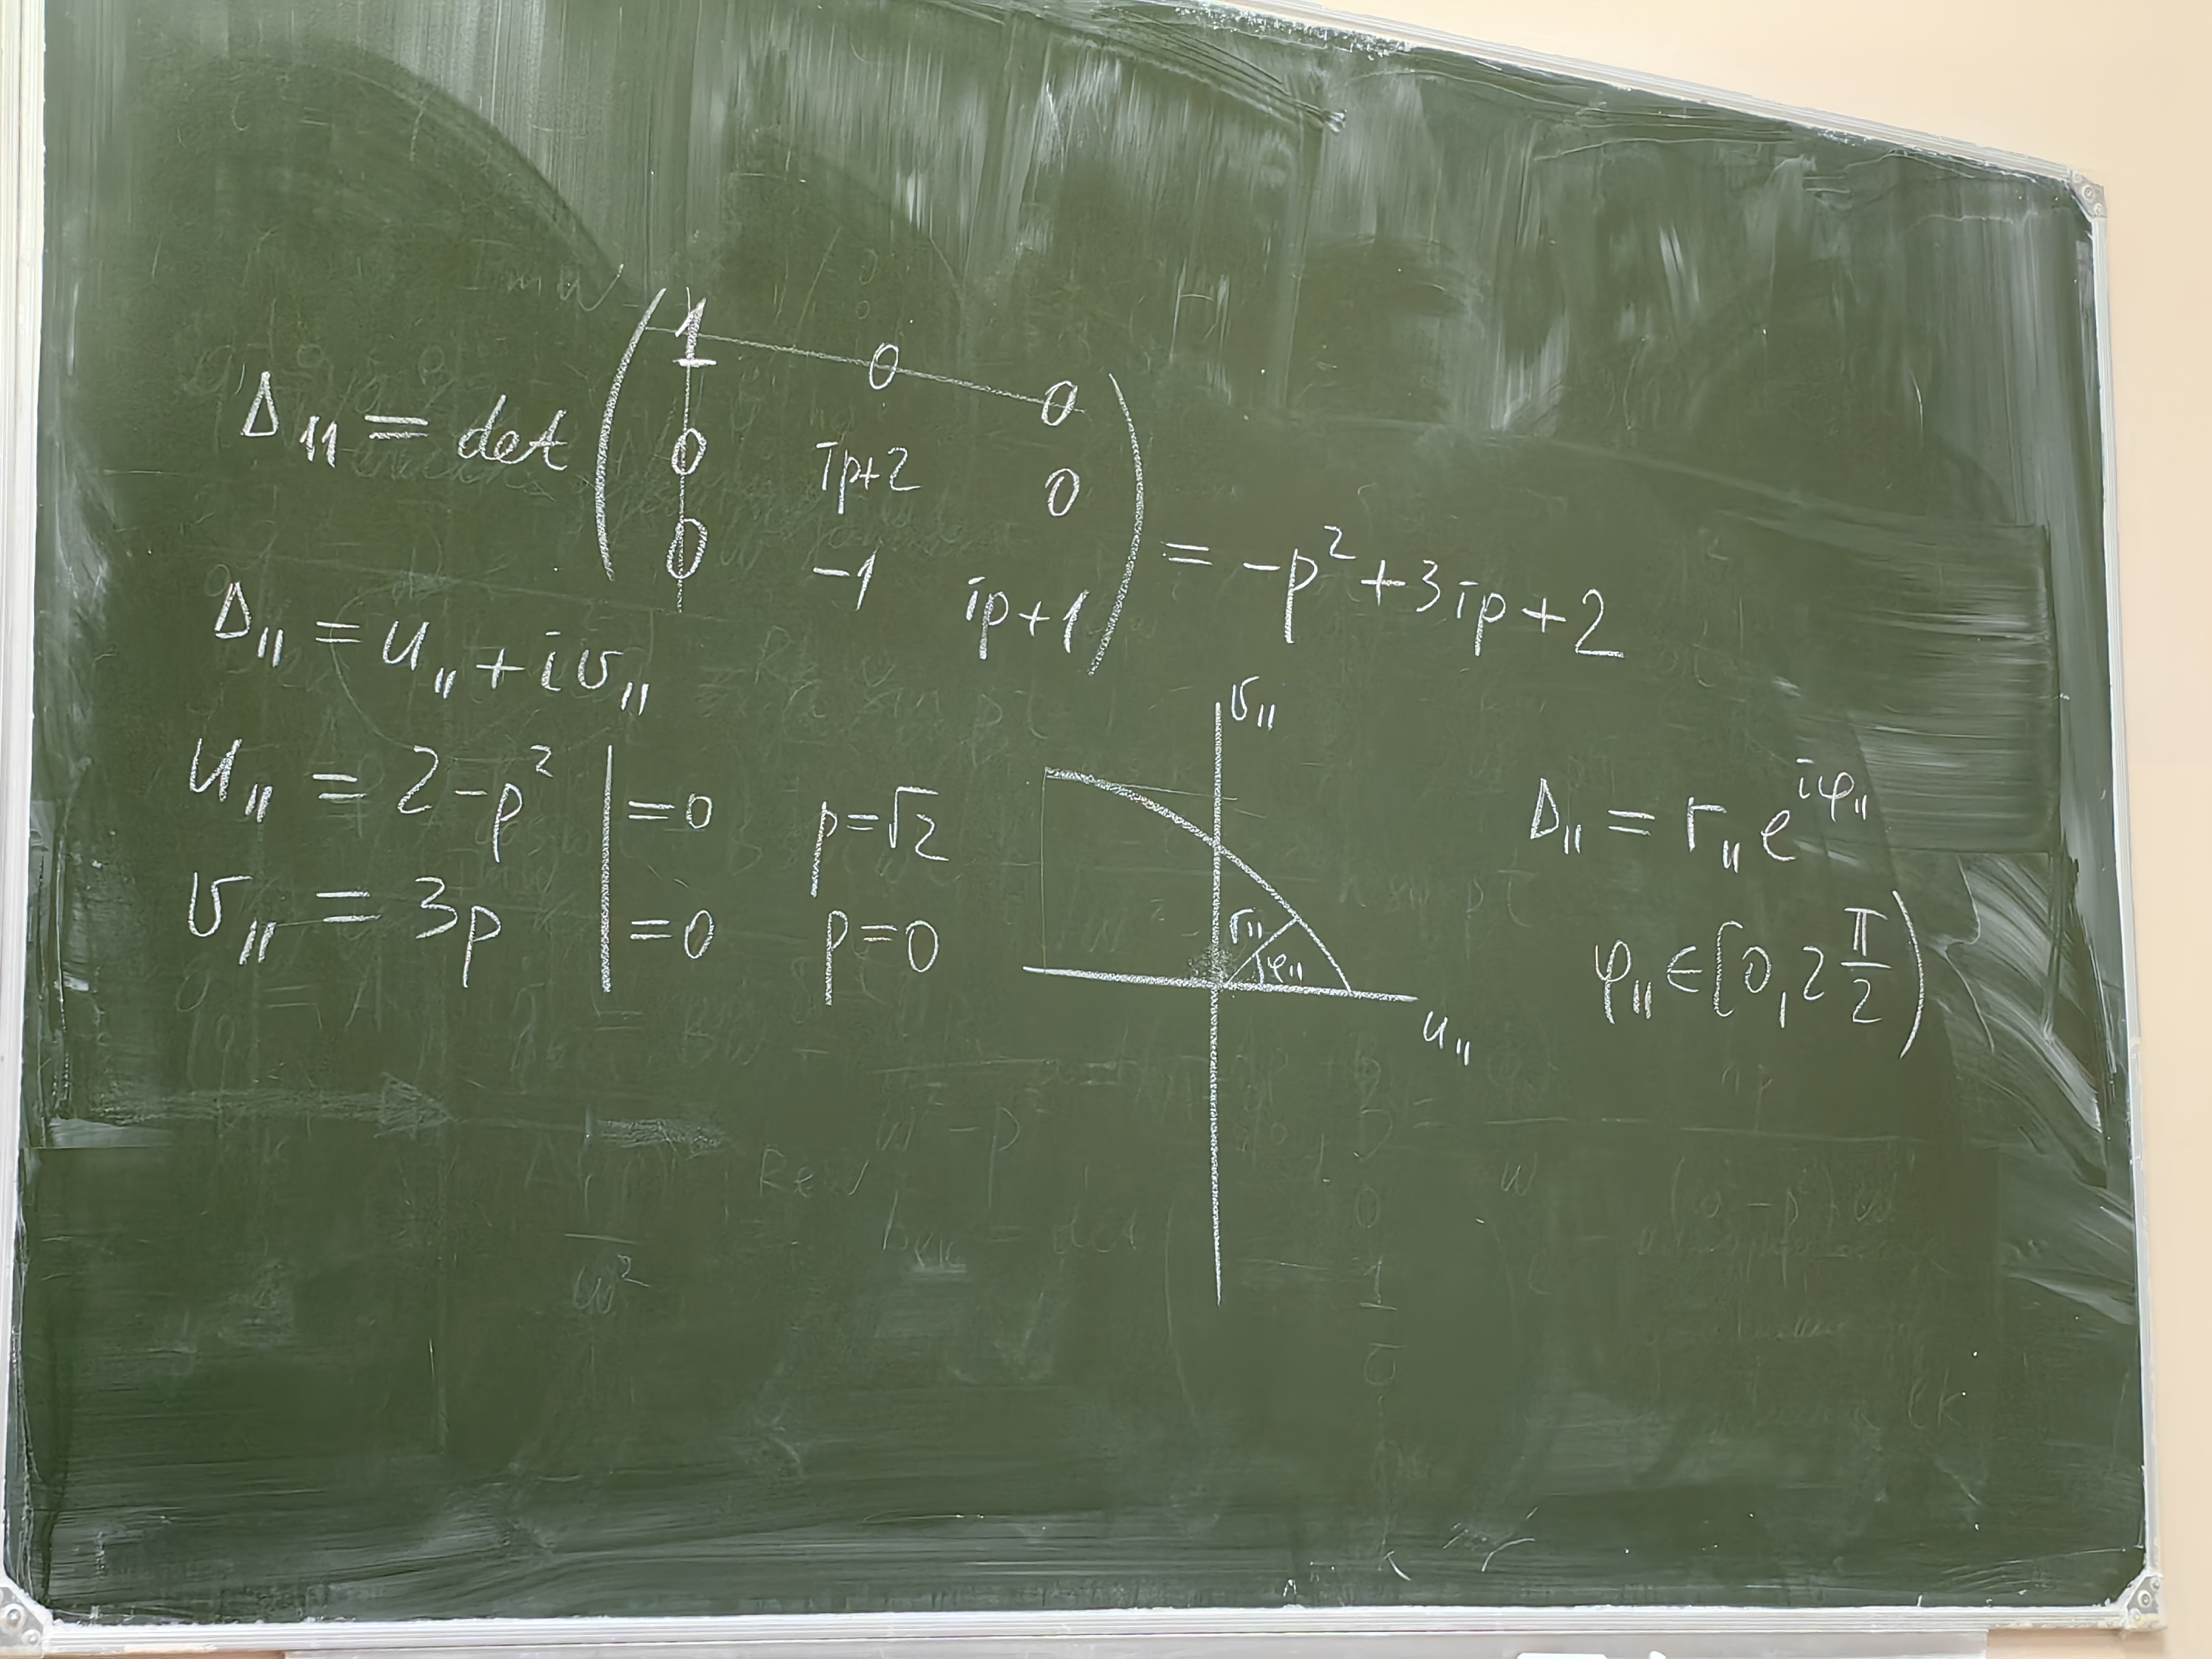 Δ₁₁ = det ( 1 0 0
0 ip+2 0
0 -1 ip+1 ) = -p² + 3ip + 2
Δ₁₁ = u₁₁ + iv₁₁
u₁₁ = 2 - p² | = 0 p = √2
v₁₁ = 3p | = 0 p = 0
v₁₁
r₁₁
φ₁₁
u₁₁
Δ₁₁ = r₁₁ e^{iφ₁₁}
φ₁₁ ∈ [0, 2 π/2)